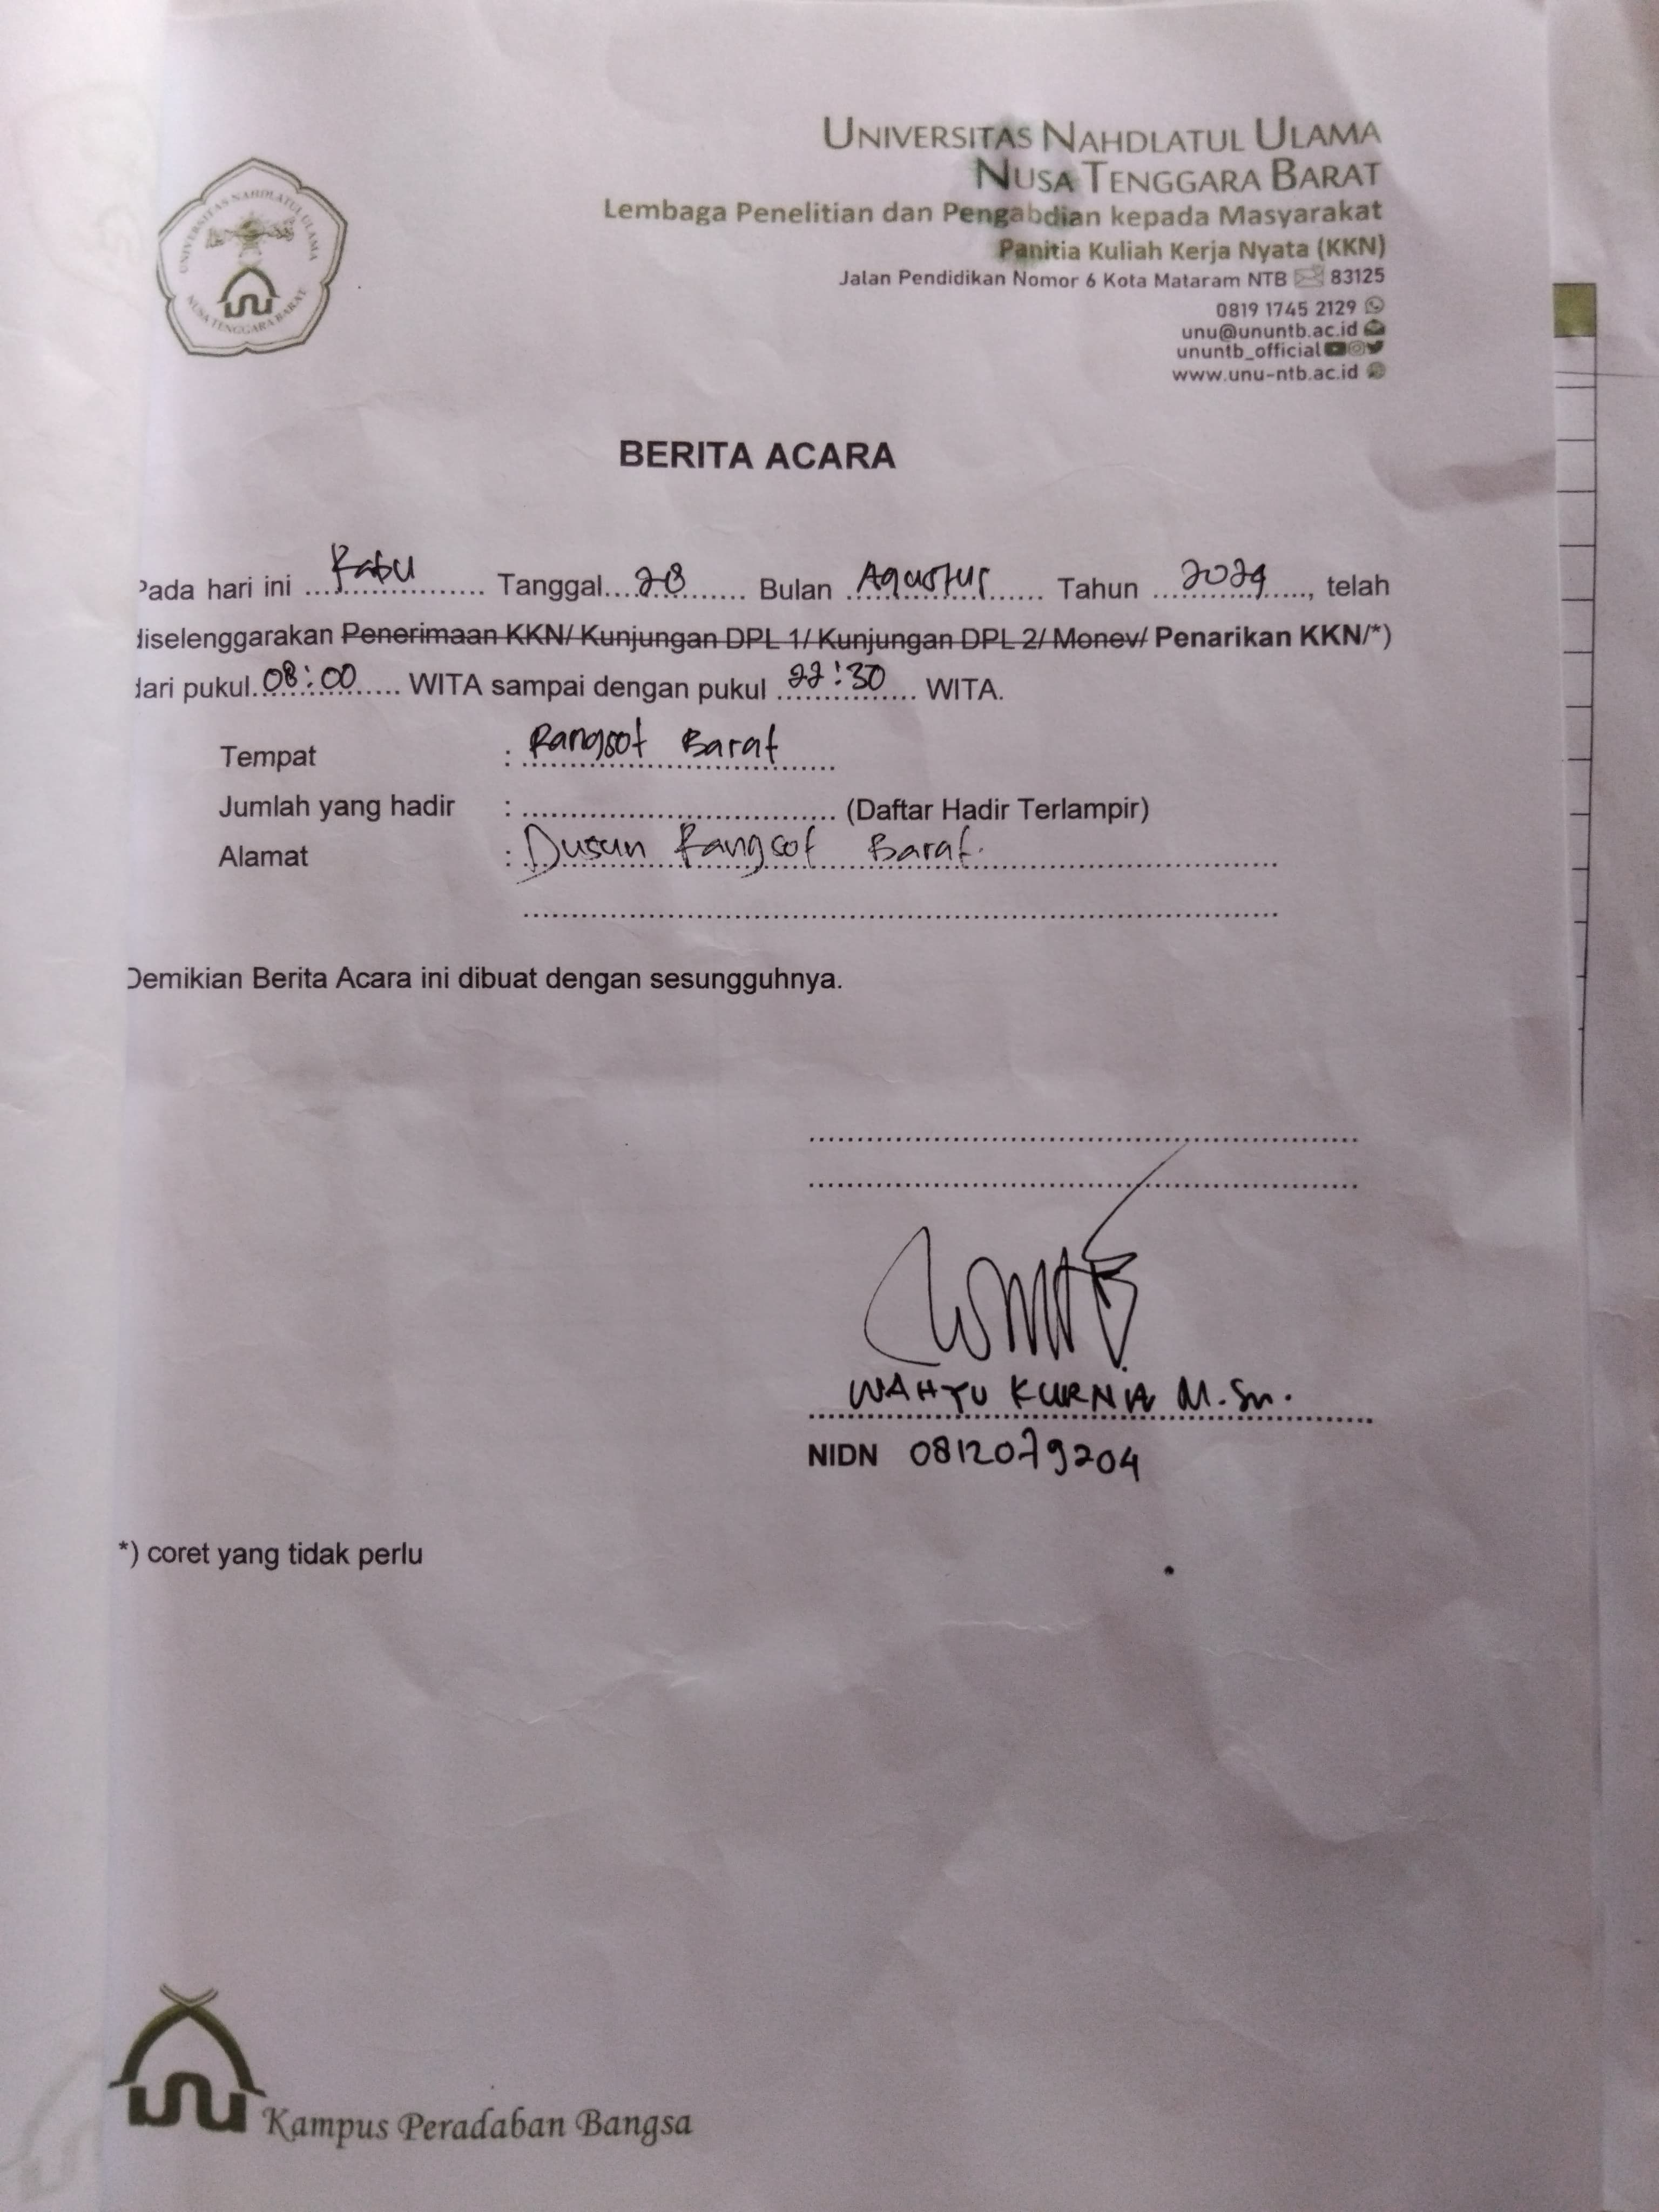 UNIVERSITAS NAHDLATUL ULAMA
NUSA TENGGARA BARAT
Lembaga Penelitian dan Pengabdian kepada Masyarakat
Panitia Kuliah Kerja Nyata (KKN)
Jalan Pendidikan Nomor 6 Kota Mataram NTB 83125
0819 1745 2129
unu@ununtb.ac.id
ununtb_official
www.unu-ntb.ac.id
UNIVERSITAS NAHDLATUL ULAMA
NUSA TENGGARA BARAT
BERITA ACARA
Pada hari ini Rabu Tanggal 28 Bulan Agustus Tahun 2024, telah
diselenggarakan Penerimaan KKN/ Kunjungan DPL 1/ Kunjungan DPL 2/ Monev/ Penarikan KKN/*)
dari pukul 08:00 WITA sampai dengan pukul 22:30 WITA.
Tempat : Rangsot Barat
Jumlah yang hadir : (Daftar Hadir Terlampir)
Alamat : Dusun Rangsot Barat.
Demikian Berita Acara ini dibuat dengan sesungguhnya.
WAHYU KURNIA M.Sn.
NIDN 0812079204
*) coret yang tidak perlu
UNU Kampus Peradaban Bangsa